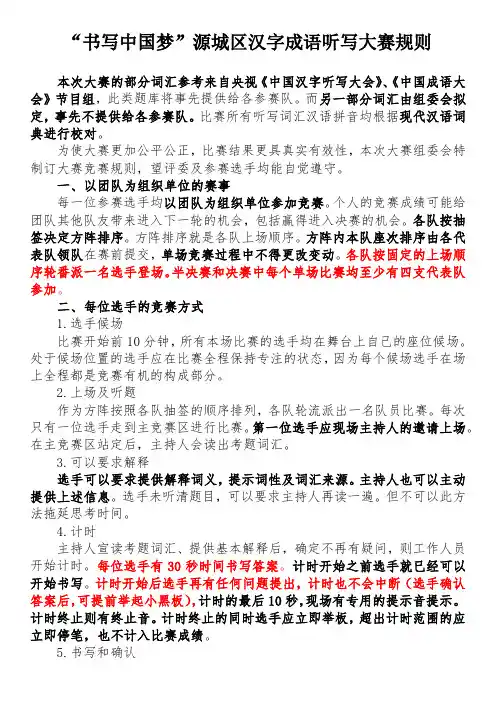 “书写中国梦”源城区汉字成语听写大赛规则
本次大赛的部分词汇参考来自央视《中国汉字听写大会》、《中国成语大
会》节目组，此类题库将事先提供给各参赛队。而另一部分词汇由组委会拟
定，事先不提供给各参赛队。比赛所有听写词汇汉语拼音均根据现代汉语词
典进行校对。
为使大赛更加公平公正，比赛结果更具真实有效性，本次大赛组委会特
制订大赛竞赛规则，望评委及参赛选手均能自觉遵守。
一、以团队为组织单位的赛事
每一位参赛选手均以团队为组织单位参加竞赛。个人的竞赛成绩可能给
团队其他队友带来进入下一轮的机会，包括赢得进入决赛的机会。各队按抽
签决定方阵排序。方阵排序就是各队上场顺序。方阵内本队座次排序由各代
表队领队在赛前提交，单场竞赛过程中不得更改变动。各队按固定的上场顺
序轮番派一名选手登场。半决赛和决赛中每个单场比赛均至少有四支代表队
参加。
二、每位选手的竞赛方式
1.选手候场
比赛开始前10分钟，所有本场比赛的选手均在舞台上自己的座位候场。
处于候场位置的选手应在比赛全程保持专注的状态，因为每个候场选手在场
上全程都是竞赛有机的构成部分。
2.上场及听题
作为方阵按照各队抽签的顺序排列，各队轮流派出一名队员比赛。每次
只有一位选手走到主竞赛区进行比赛。第一位选手应现场主持人的邀请上场。
在主竞赛区站定后，主持人会读出考题词汇。
3.可以要求解释
选手可以要求提供解释词义，提示词性及词汇来源。主持人也可以主动
提供上述信息。选手未听清题目，可以要求主持人再读一遍。但不可以此方
法拖延思考时间。
4.计时
主持人宣读考题词汇、提供基本解释后，确定不再有疑问，则工作人员
开始计时。每位选手有30秒时间书写答案。计时开始之前选手就已经可以
开始书写。计时开始后选手再有任何问题提出，计时也不会中断（选手确认
答案后，可提前举起小黑板），计时的最后10秒，现场有专用的提示音提示。
计时终止则有终止音。计时终止的同时选手应立即举板，超出计时范围的应
立即停笔，也不计入比赛成绩。
5.书写和确认